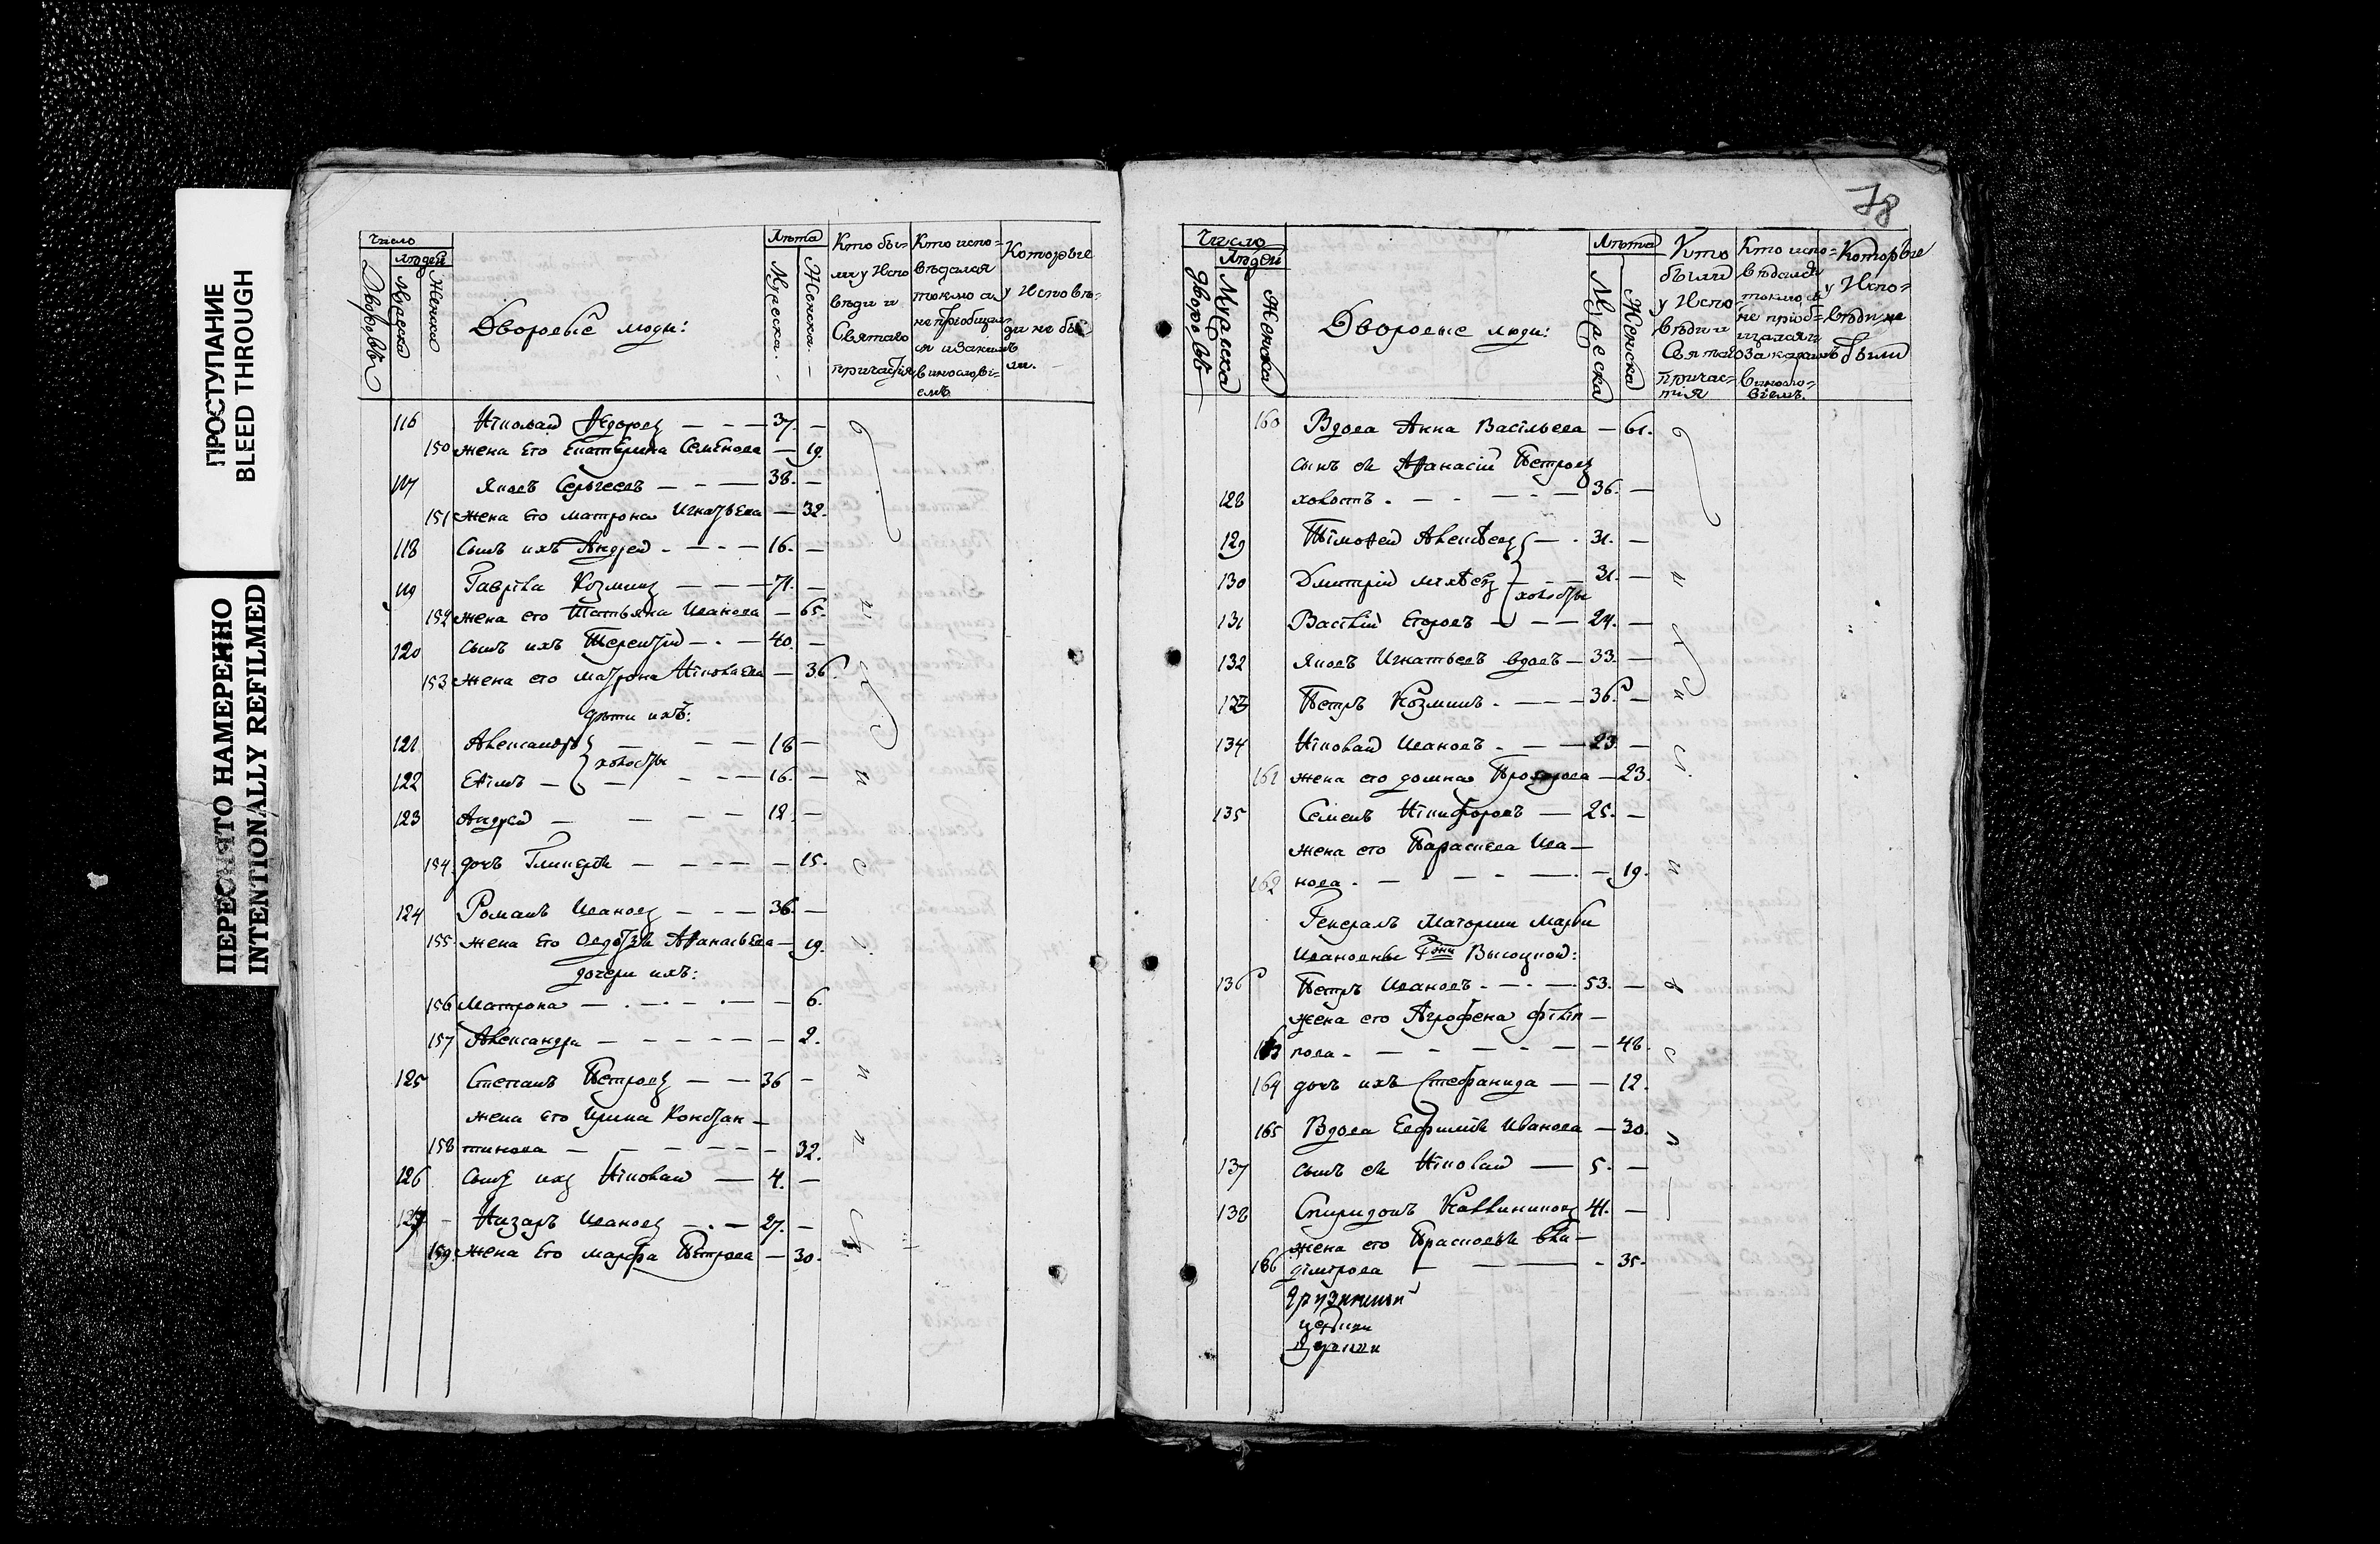 ПРОСТУПАНИЕ
BLEED THROUGH
ПЕРЕСНЯТО НАМЕРЕННО
INTENTIONALLY REFILMED
Число
Людей
Дворовъ
Мужеска
Женска
Дворовые люди:
Лѣта
Мужеска
Женска
Кто бы-
ли у Испо
вѣди и
Святаго
причастія
Кто испо-
вѣдался
токмо а
не пріобщил
ся и за каким
винослові-
емъ
Которые
у Исповѣ-
ди не бы
ли.
116 Николай Ѳедоровъ — 37. —
150 жена Его Екатерина Семенова — 19.
117 Яковъ Сергеевъ — 38. —
151 жена Его матрона Игнатьева — 32.
118 Сынъ ихъ Андрей — 16. —
119 Гаврила Козминъ — 71. —
152 жена его Татьяна Иванова — 65.
120 сынъ ихъ Терентій — 40. —
153 жена его матрона Николаева — 36.
дѣти ихъ:
121 Александръ — 18 —
холосты
122 Ефимъ — 16. —
123 Андрей — 12. —
154 дочь Гликерія — 15.
124 Романъ Ивановъ — 36. —
155 жена Его Авдотья Афанасьева — 19.
дочери ихъ:
156 Матрона — 6.
157 Александра — 2.
125 Степанъ Петровъ — 36 —
жена его Ирина Констан —
158 тинова — 32.
126 Сынъ ихъ Николай — 4. —
127 Назаръ Ивановъ — 27. —
159 жена Его марфа Петрова — 30.
78
Число
Людей
Дворовъ
Мужеска
Женска
Дворовые люди:
Лѣта
Мужеска
Женска
Кто
были
у Испо
вѣди и
Святаго
причас-
тія
Кто испо-
вѣдался
токмо, а
не пріоб-
щался и
за какимъ
винословіемъ.
Которые
у Испо-
вѣди не
были
160 Вдова Анна Васильева — 61.
сынъ ея Афанасій Петровъ
128 холостъ — 36. —
129 Тимофей Алексѣевъ — 31. —
130 Дмитрій михѣевъ — 31. —
холосты
131 Василій Егоровъ — 24. —
132 Яковъ Игнатьевъ вдовъ — 33. —
133 Петръ Козминъ — 36. —
134 Николай Ивановъ — 23. —
161 жена его домна Прохорова — 23.
135 Семенъ Никифоровъ — 25. —
жена его Параскева Ива —
162 нова — 19.
Генералъ Маіорши Марьи
Ивановны Гжи Высоцкой:
136 Петръ Ивановъ — 53. —
жена его Агрофена филип —
163 пова — 48.
164 дочь ихъ Стефанида — 12.
165 Вдова Евфимія Иванова — 30.
137 сынъ ея Николай — 5. —
138 Спиридонъ Каллиниковъ 41. —
жена его Прасковья Вла —
166 димірова — 35.